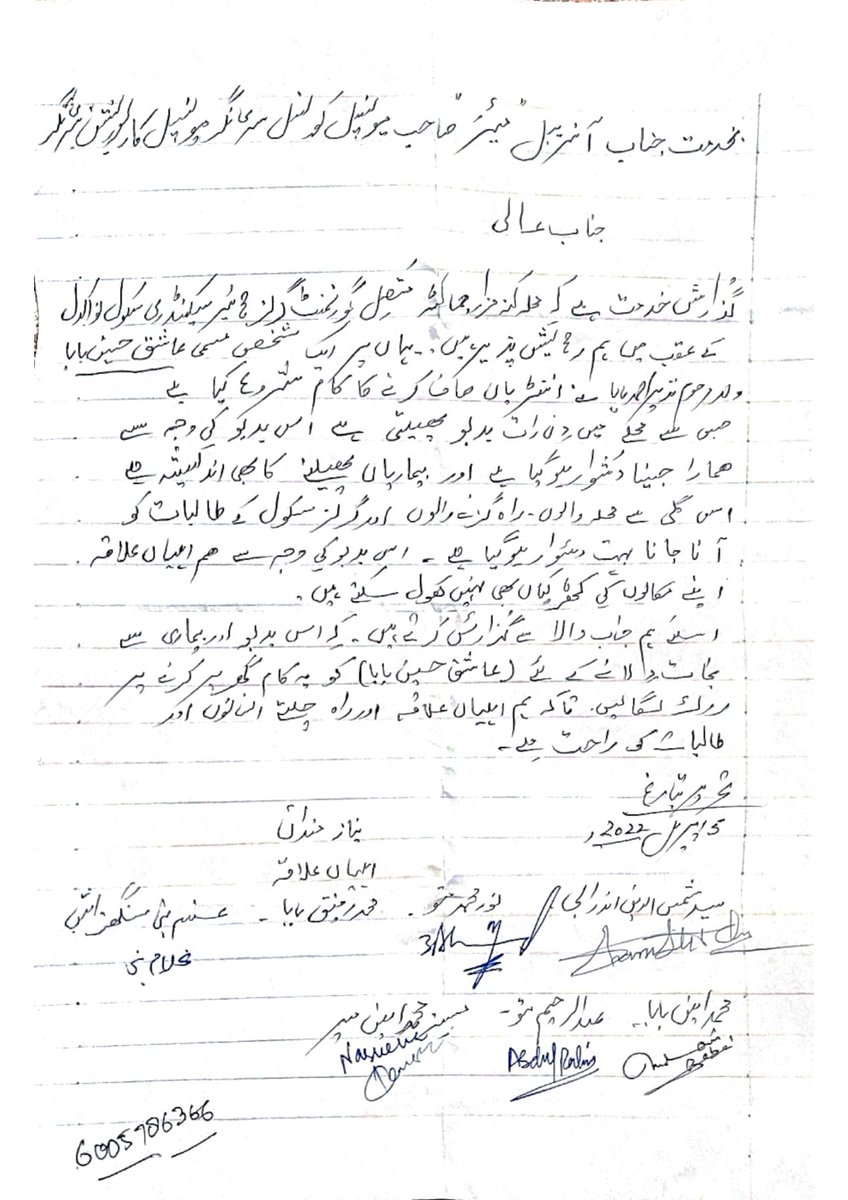 بخدمت جناب آنریبل "میئر" صاحب میونسپل کونسل سرینگر میونسپل کارپوریشن سرینگر
جناب عالی
گذارش خدمت ہے کہ محلہ کنہ مزار جمالٹہ متصل گورنمنٹ گرلز ہائیر سیکنڈری سکول نواکدل
کے عقب میں ہم رہائیش پذیر ہیں۔ یہاں پر ایک شخص مسمی عاشق حسین بابا
ولد مرحوم نذیر احمد بابا نے انتڑیاں صاف کرنے کا کام شروع کیا ہے
جس سے محلے میں دن رات بدبو پھیلتی ہے اس بدبو کی وجہ سے
ہمارا جینا دشوار ہوگیا ہے اور بیماریاں پھیلنے کا بھی اندیشہ ہے
اس گلی سے محلہ والوں۔ راہ گزنے والوں اور گرلز سکول کے طالبات کو
آنا جانا بہت دشوار ہوگیا ہے۔ اس بدبو کی وجہ سے ہم اہلیان علاقہ
اپنے مکانوں کی کھڑکیاں بھی نہیں کھول سکتے ہیں۔
اسلئے ہم جناب والا سے گزارش کرتے ہیں۔ کہ اس بدبو اور بیماری سے
نجات دلانے کے لئے (عاشق حسین بابا) کو یہ کام گھر پر کرنے پر
روک لگائیں۔ تاکہ ہم اہلیان علاقہ اور راہ چلتے انسانوں اور
طالبات کو راحت ملے۔
تحریر تاریخ
5 اپریل 2022ء
نیاز مندان
اہلیان علاقہ
سید شمس الدین اندرابی نور محمد متو۔ محمد رفیق بابا۔
غلام نبی
محمد امین بابا۔ عبدالرحیم متو۔ محمد امین میر
Abdul Rahim
6005986366